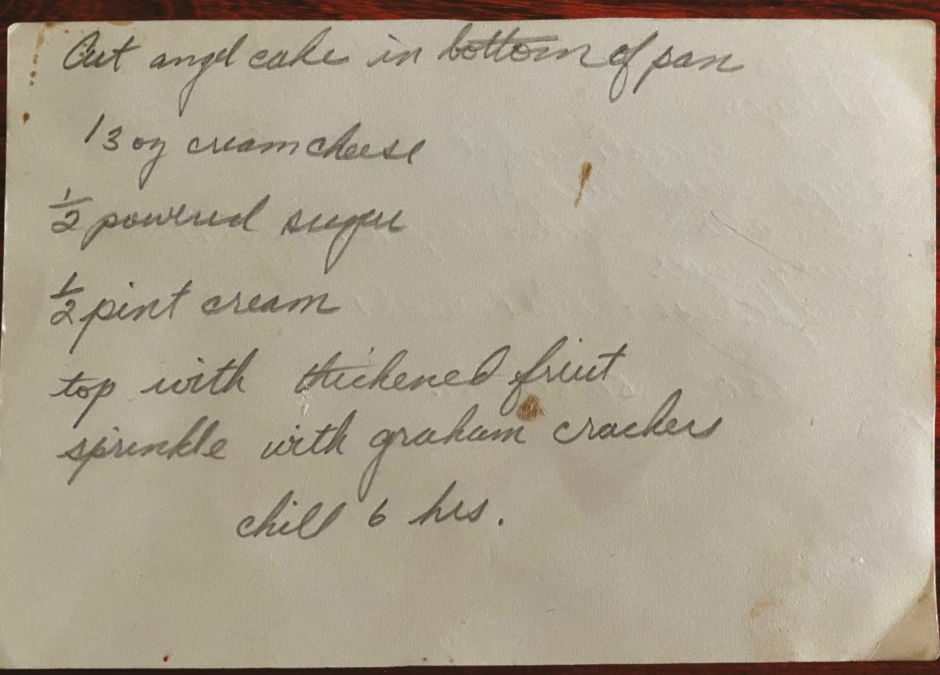 Cut angel cake in bottom of pan
1 3 oz cream cheese
½ powered sugar
½ pint cream
top with thickened fruit
sprinkle with graham crackers
chill 6 hrs.